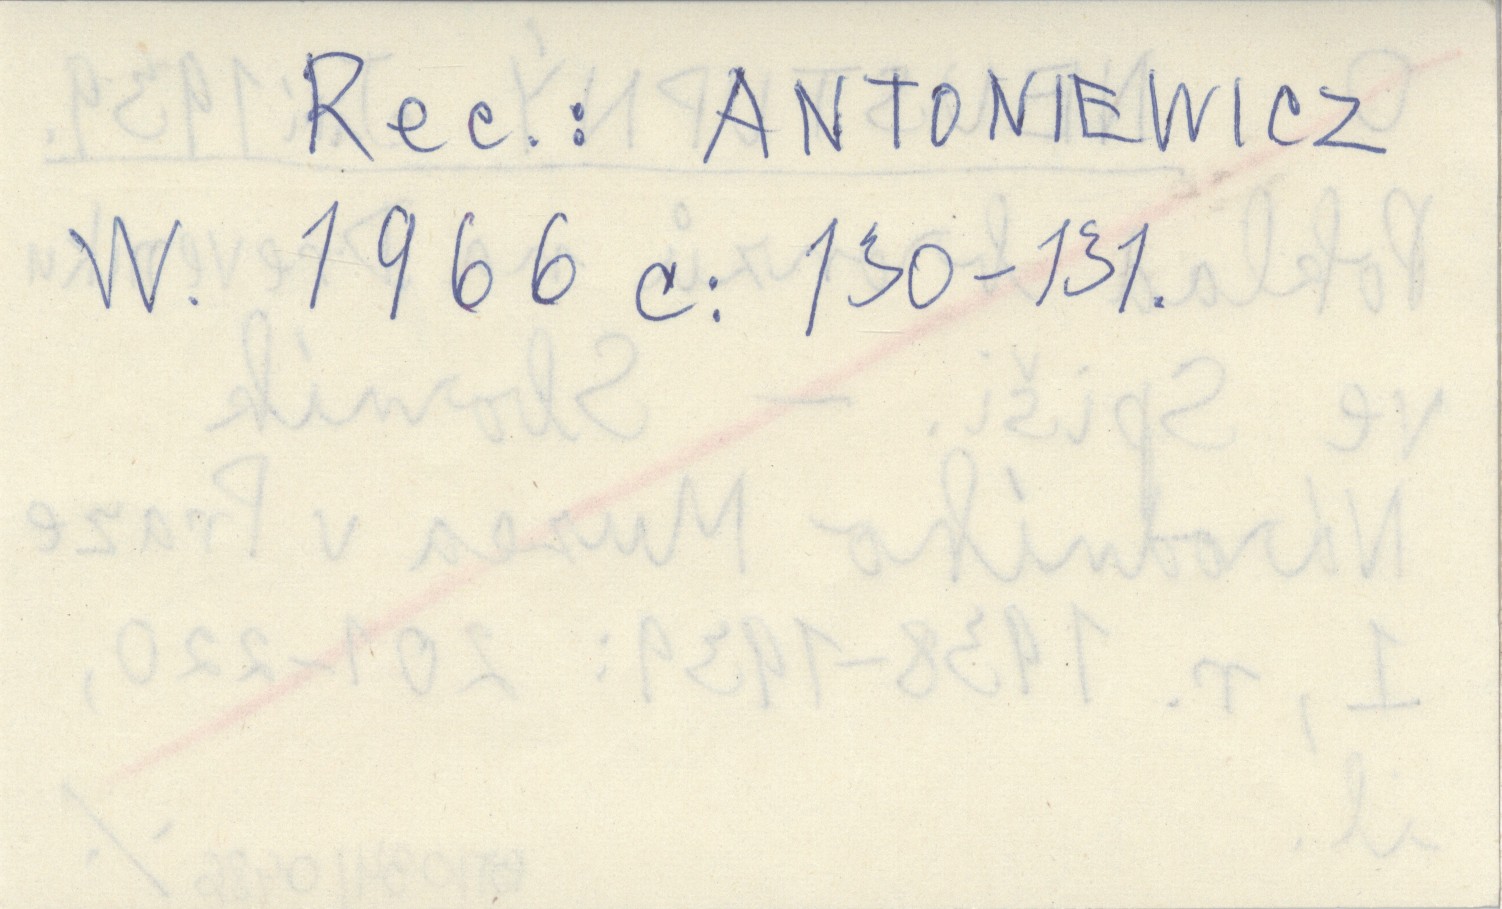 Rec.: ANTONIEWICZ
W. 1966 c: 130-131.